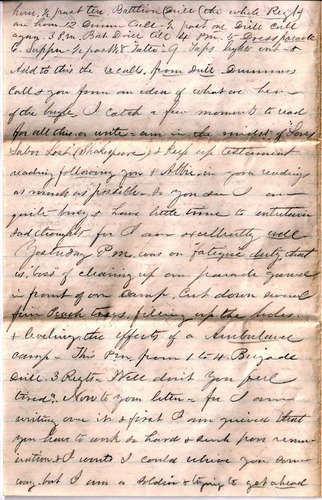 hour, ½ past ten Battalion Drill (the whole Reg't)
an hour 12 Dinner Call - ½ past one Drill Call
again. 3 P.M. Bat Drill till 4 P.M. to Dress parade
6 Supper - ½ past 8 Tattoo - 9 Taps lights out - &
Add to this the recall, from Drill - Drummers
Call & you form an idea of what we hear
of the bugle. I catch a few moments to read
for all this or write - am in the midst of Loves
Labor Lost (Shakespeare) & Keep up testament
reading following you & Abbie in you reading
as much as possible. So you see I am
quite busy & have little time to entertain
sad thoughts for I am excellently well
Yesterday P.M. was on Fatigue duty, that
is "boss" of clearing up our parade ground
in front of our Camp. Cut down several
fine Peach trees, filling up the holes
& leveling the effects of a Ambulance
camp - This P.M. from 1 to 4 Brigade
Drill. 3 Regts. Well don't you feel
tired? Now to your letter - for I am
writing over it & first I am grieved that
you have to work so hard & such poor remu-
neration & I wish I could relieve you some
way. but I am a Soldier & trying to get ahead